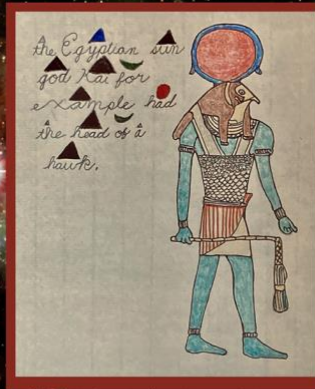 the Egyptian sun
god Rai for
example had
the head of a
hawk.